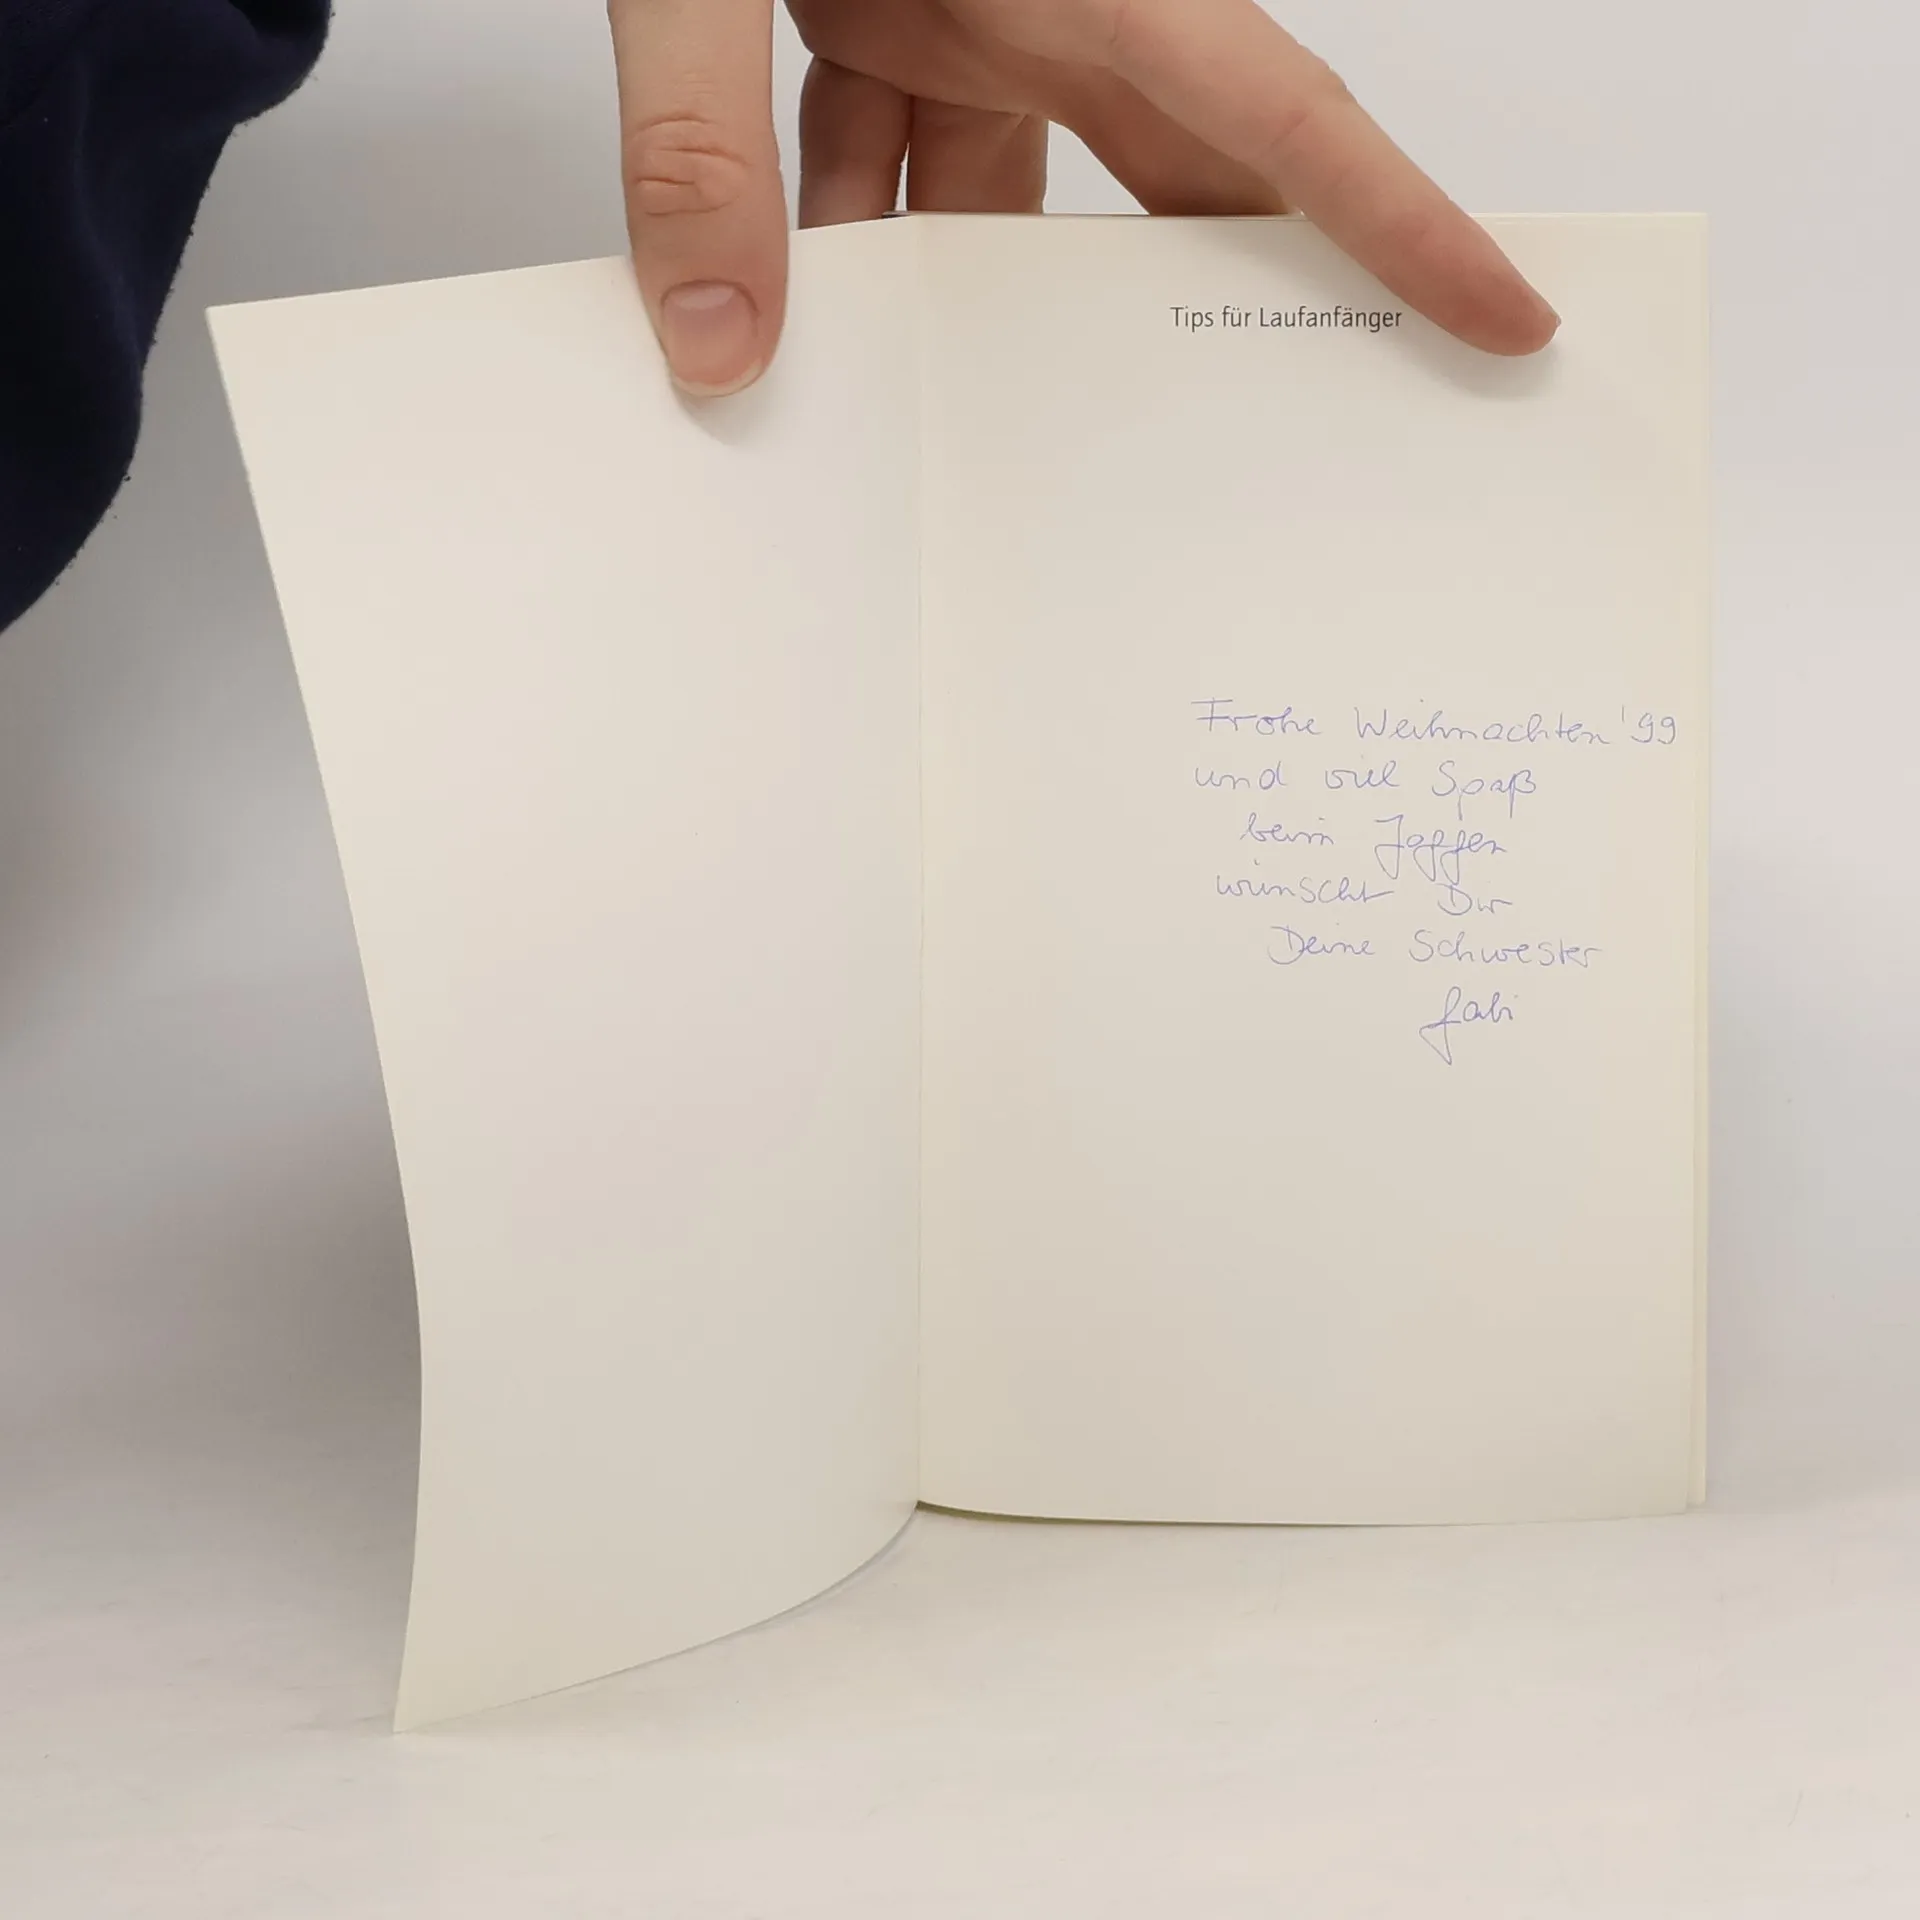 Tips für Laufanfänger
Frohe Weihnachten '99
und viel Spaß
beim Joggen
wünscht Dir
Deine Schwester
Gabi